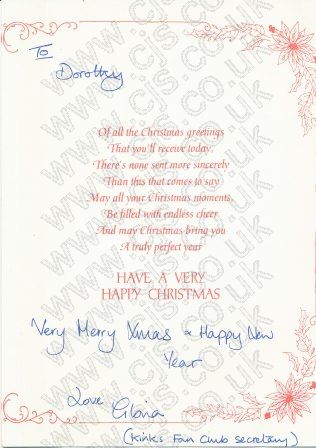 To
Dorothy
Of all the Christmas greetings
That you'll receive today,
There's none sent more sincerely
Than this that comes to say
May all your Christmas moments
Be filled with endless cheer
And may Christmas bring you
A truly perfect year
HAVE A VERY
HAPPY CHRISTMAS
Very Merry Xmas & Happy New
Year
Love Gloria
(Kinks Fan Club Secretary)
www.cjs.co.uk